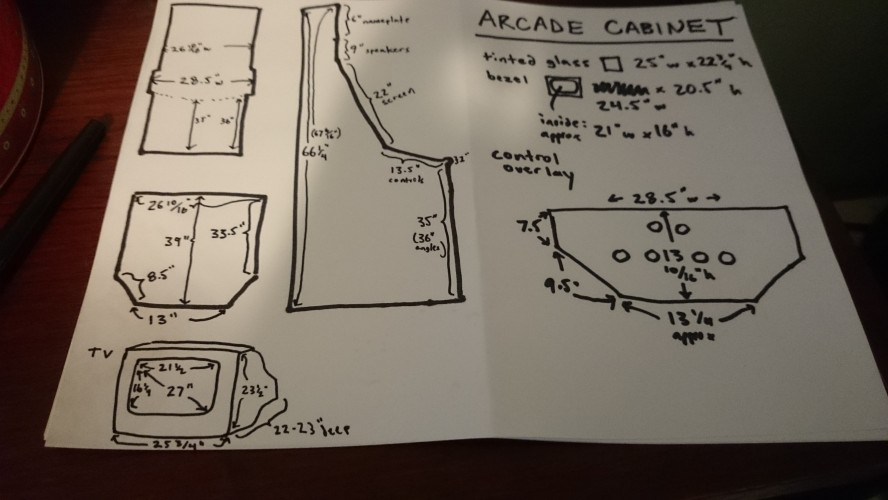 ARCADE CABINET
tinted glass 25"w x 22 3/4"h
bezel x 20.5"h
24.5"w
inside: 21"w x 16"h
approx
control
overlay
28.5"w
7.5"
13
10/16"h
9.5"
13 1/4
approx
28.5"w
35" 36"
6" nameplate
9" speakers
22"
screen
66 1/4"
13.5"
controls
35"
(36"
angles)
26 10/16"
39" 33.5"
8.5"
13"
TV
21 1/2
16 1/4 27" 23 1/2"
22-23" deep
25 3/4"